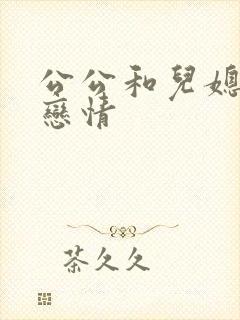 公公和兒媳
戀情
茶久久